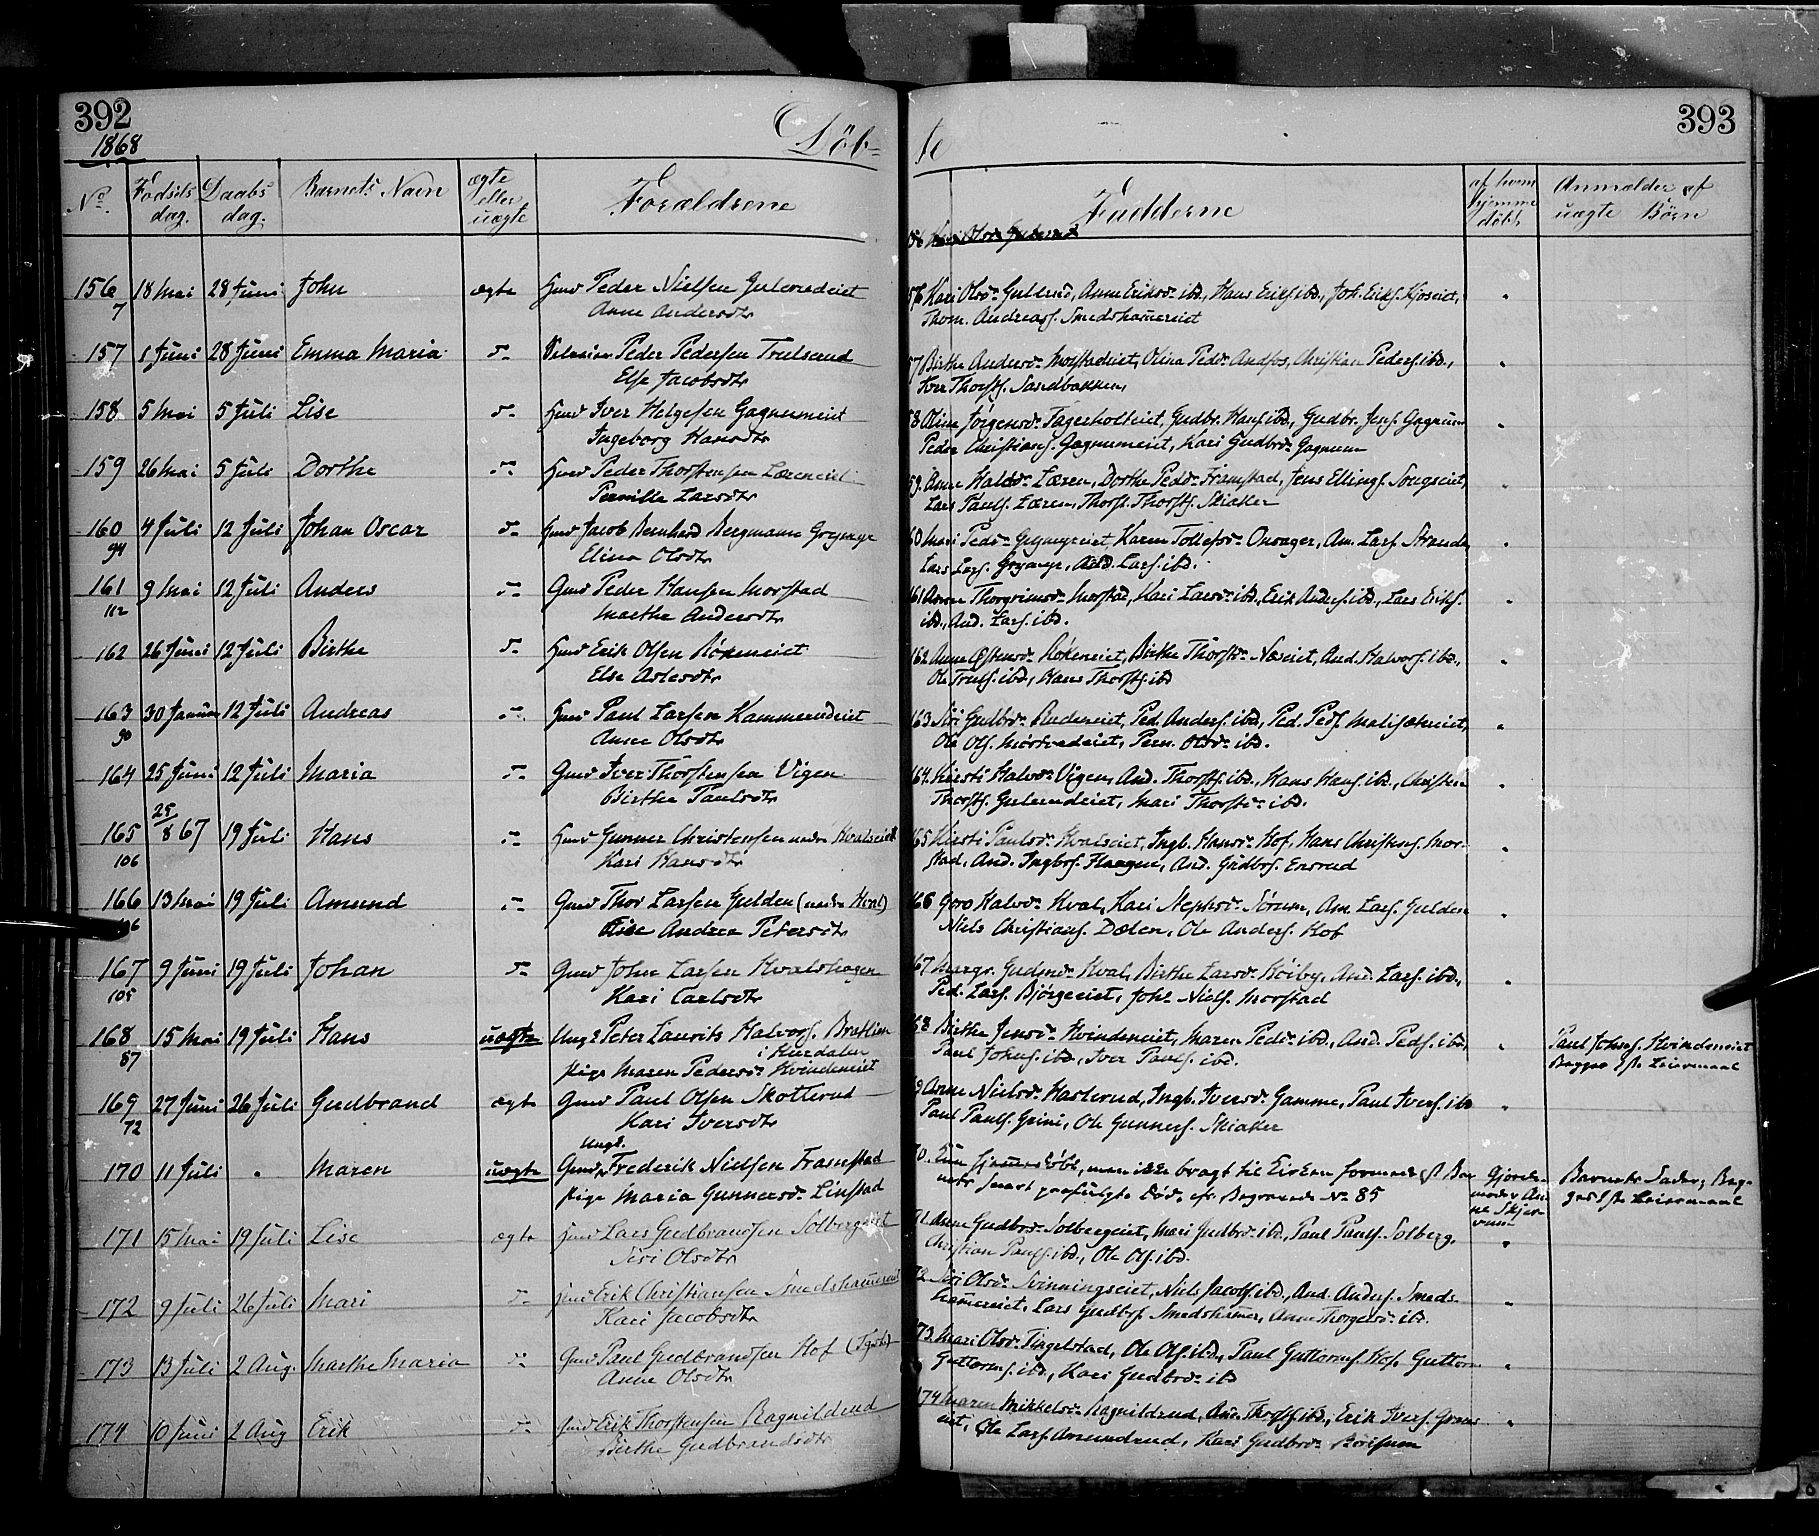 392
1868
Döb-
No.
Födsels
dag.
Daabs
dag.
Barnets Navn
ægte
eller
uægte
Forældrene
156 18 Mai 28 Juni John ægte Huusm Peder Nielsen Gulerudeiet
7 Anne Andersdtr
157 1 Juni 28 Juni Emma Maria do- Peder Pedersen Trulserud
Else Jacobsdtr
158 5 Mai 5 Juli Lise do- Huusm Iver Helgesen Gagnumeiet
Ingeborg Hansdtr
159 26 Mai 5 Juli Dorthe do- Huusm Peder Thorstensen Læreneiet
Pernille Larsdtr
160 4 Juli 12 Juli Johan Oscar do- Huusm Jacob Bernhard Bergmann Grymyr
94 Elina Olsdtr
161 9 Mai 12 Juli Anders do- Gmd Peder Hansen Morstad
112 Marthe Andersdtr
162 26 Juni 12 Juli Birthe do- Huusm Erik Olsen Rökeneiet
Else Aslesdtr
163 30 Januar 12 Juli Andreas do- Huusm Paul Larsen Hammerudeiet
90 Anne Olsdtr
164 25 Juni 12 Juli Maria do- Gmd Iver Thorstensen Vigen
Birthe Paulsdtr
165 25/8 67 19 Juli Hans do- Huusm Gunner Christensen nedre Hvalseiet
106 Kari Hansdtr
166 13 Mai 19 Juli Amund do- Gmd Thor Larsen Gulden (nedre Hval)
106 Andrea Petersdtr
167 9 Juni 19 Juli Johan do- Gmd John Larsen Hvalshagen
105 Kari Carlsdtr
168 15 Mai 19 Juli Hans uægte Ungk Peter Laurits Halvors. Bratlien
i Hurdalen
87 Pige Maren Pedersdr Hvindeneiet
169 27 Juni 26 Juli Gudbrand ægte Gmd Paul Olsen Skotterud
72 Kari Iversdtr
Ungk.
170 11 Juli " Maren uægte Gmds Frederik Nielsen Framstad
Pige Maria Gunnersdr Linstad
171 15 Mai 19 Juli Lise ægte Huusm Lars Gudbrandsen Solbergeiet
Siri Olsdtr
172 9 Juli 26 Juli Mari do- Huusm Erik Christiansen Smedshamereiet
Kari Jacobsdtr
173 13 Juli 2 Aug. Marthe Maria do- Gmd Paul Gudbrandsen Hof
Anne Olsdtr
174 10 Juni 2 Aug Erik do- Gmd Erik Thorstensen Ragnildrud
Birthe Gudbrandsdtr
te
393
Fadderne
af hvem
hjemme
döbt
Anmelder af
uægte Börn
156 Kari Olsdr Gulerud
156 Kari Olsdr Gulerud, Anne Eriksdr ibd, Hans Eriks. ibd., Joh. Eriks. Kjoseiet,
Thom. Andreass. Smedshamereiet
57 Birthe Andersdr Morstadeiet, Olina Pedsdr Andfos, Christian Peders. ibd.,
Iver Thorsts. Sandbakken,
58 Oline Jörgensdr Fagerholteiet, Gudbr. Hans. ibd., Gudbr. Jens. Gagnum
Peder Christians. Gagnumeiet, Kari Gudbrdr Gagnum
59. Anne Halvdr Læren, Dorthe Pedsdr Framstad, Jens Ellings. Sougseiet,
Lars Pauls. Læren, Thorst. Thorsts. Skiaker
60 Mari Pedsdr Grymyreiet, Karen Tollefsdr Onsager, Am. Lars. Stranden
Lars Lars. Grymyr, And. Lars. ibd.
161 Anne Thorgrimsdr Morstad, Kari Larsdr ibd., Erik Anders. ibd., Lars Eriks.
ibd., And. Lars. ibd.
162 Anne Östensdr Rökeneiet, Birthe Thorstsdr Næseiet, And. Halvors. ibd.,
Ole Truls. ibd., Hans Thorsts. ibd
163 Siri Gudbrdr Rudeneiet, Ped. Anders. ibd., Ped. Peds. Malisætereiet,
Ole Ols. Mortvedeiet, Pern. Olsdr ibd.
164. Kirsti Halvdr Vigen, And. Thorsts. ibd., Hans Hans. ibd., Christen
Thorsts. Gulerudeiet, Mari Thorstsdr ibd.
165 Kirsti Paulsdr Hvalseiet, Ingb. Hansdr Hof, Hans Christians. Mor-
stad, And. Ingbrs. Haagen, And. Gudbrs. Ensrud
166 Goro Halvdr Hval, Kari Nephsdr Sörum, Am. Lars. Gulden
Niels Christians. Dælen, Ole Anders. Hof
67 Margr. Gudmdr Hval, Birthe Larsdr Höiby, And. Lars. ibd.,
Ped. Lars. Björgeeiet, Johs Niels. Morstad
68 Birthe Jensdr Hvindeneiet, Maren Pedsdr ibd., And. Peds. ibd,
Paul Johns. ibd., Iver Pauls. ibd.
Paul Johns. Hvindeneiet
Begges 1ste Leiermaal
69 Anne Nielsdr Hasterud, Ingb. Iversdr Gamme, Paul Ivers. ibd
Paul Pauls. Grini, Ole Gunners. Skiaker
70. Kun hjemmedöbt, men ikke bragt til Kirken formedelst Bar
nets snart paafulgte Död, cfr Begravede No 85
Gjorde-
moder An-
ne Skjer-
vum
Barnets Fader, Beg-
ges 1ste Leiermaal
71 Anne Gudbrdr Solbergeiet, Mari Gudbrdr ibd, Paul Pauls. Solberg,
Christian Pauls. ibd., Ole Ols. ibd.
72. Siri Olsdr Svinningseiet, Niels Jacobs. ibd., And. Anders. Smeds-
hamereiet, Lars Gudbrs. Smedshamer, Anne Thorgersdr ibd.
73. Mari Olsdr Tingelstad, Ole Ols. ibd., Paul Guttorms. Hof, Guttorm
Guttorms. ibd., Kari Gudbrdr ibd
174 Maren Mikkelsdr Ragnildrud, And. Thorsts. ibd., Erik Ivers. Grines
eiet, Ole Lars. Amundrud, Kari Gudbrdr Börisum